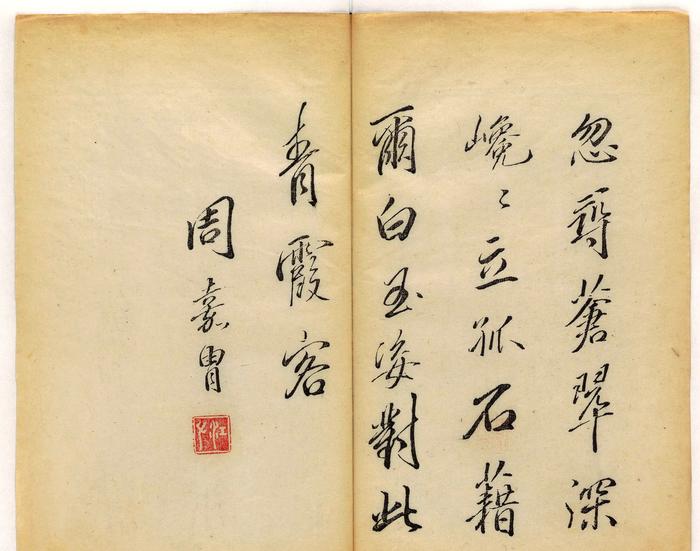 忽尋蒼翠深
巉〻立孤石藉
爾白玉姿對此
青霞客
周嘉冑